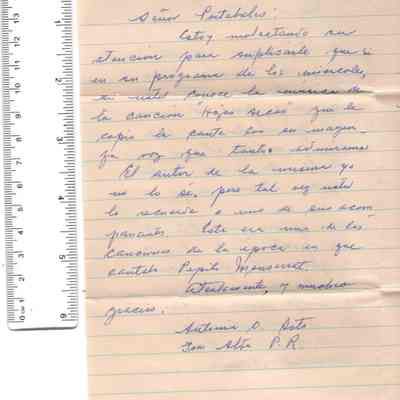 Señor Portabales:
Estoy molestando su
atención para suplicarle que si
en su programa de los miércoles,
si usted conoce la musica de
la canción "Hojas Secas" que le
copio la cante con su
voz que tanto admiramos
El autor de la misma yo
no lo sé, pero tal vez usted
lo recuerda o uno de sus acom
pañantes. Esta era una de las
canciones de la época en que
cantaba Pepito Monserrat.
Atentamente, y muchas
gracias.
Antonio O.
Toa Alta P.R.